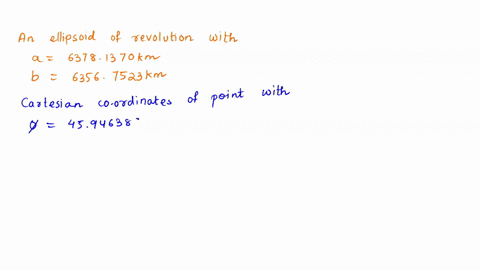 An ellipsoid of revolution with
a = 6378.1370km
b = 6356.7523km
Cartesian co.ordinates of point with
φ = 45.94638